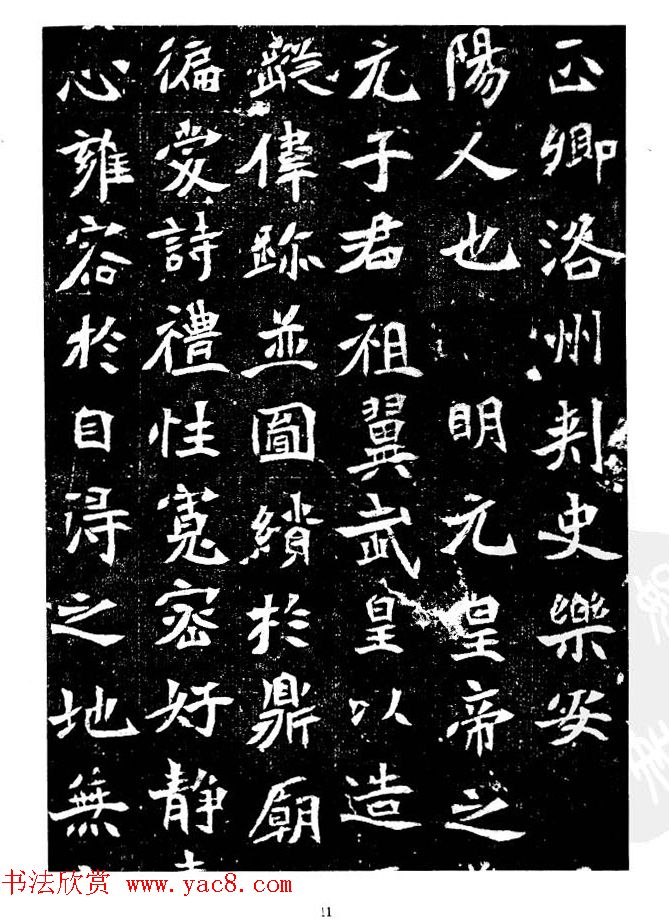 正卿洛州刾史樂安
陽人也 明元皇帝之
元子君祖翼武皇以造
蹤偉跡並圖繢於鼎廟
徧愛詩禮性寬密好静
心雍容於自得之地無
书法欣赏 www.yac8.com
11